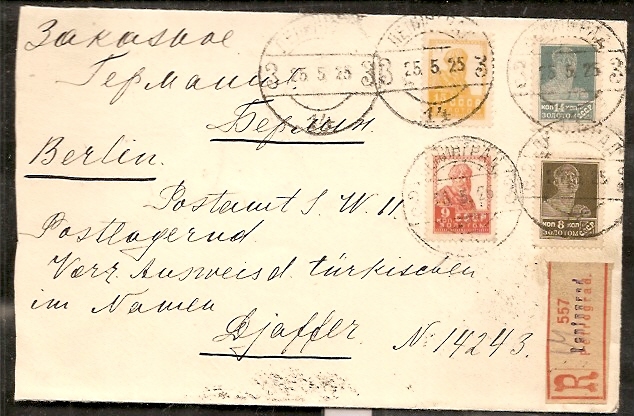 Заказное
Германия
Берлин
Berlin.
Postamt S. W. 11
Postlagernd
Vorz. Ausweis d türkischen
im Namen
Djaffer
№ 14243.
25.5.25
14
25.5.25
14
КОП 14 КОП
ЗОЛОТОМ
КОП 8 КОП
ЗОЛОТОМ
9
R
557
Leningrad.